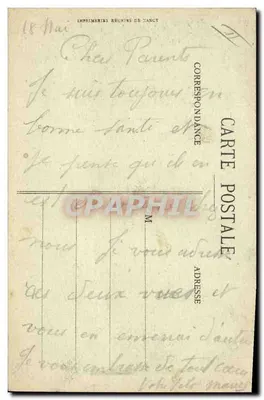 IMPRIMERIES RÉUNIES DE NANCY
18 Mai
II
Chers Parents
Je suis toujours en
bonne santé et
je pense qu'il en
est de
nous Je vous adresse
ces deux vues et
vous en enverrai d'autres
Je vous embrasse de tout cœur
Votre fils
CARTE POSTALE
CORRESPONDANCE
ADRESSE
M
CPAPHIL